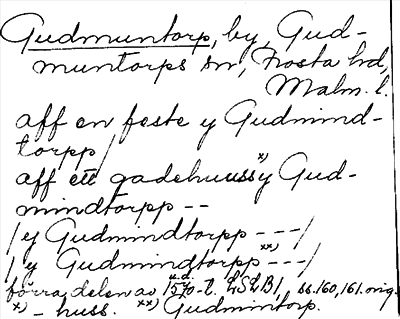 Gudmuntorp, by, Gud-
muntorps sn, Frosta hd,
Malm. l.
aff en feste y Gudmind-
torpp/
aff ett gadehuuss x) y Gud-
mindtorpp --
/ y Gudmindtorpp ---/
/, y Gudmindtorpp xx) ---/
förra delen av 1570-t. LSLB1, ss. 160, 161. orig.
x) - huss. xx) Gudmintorp.